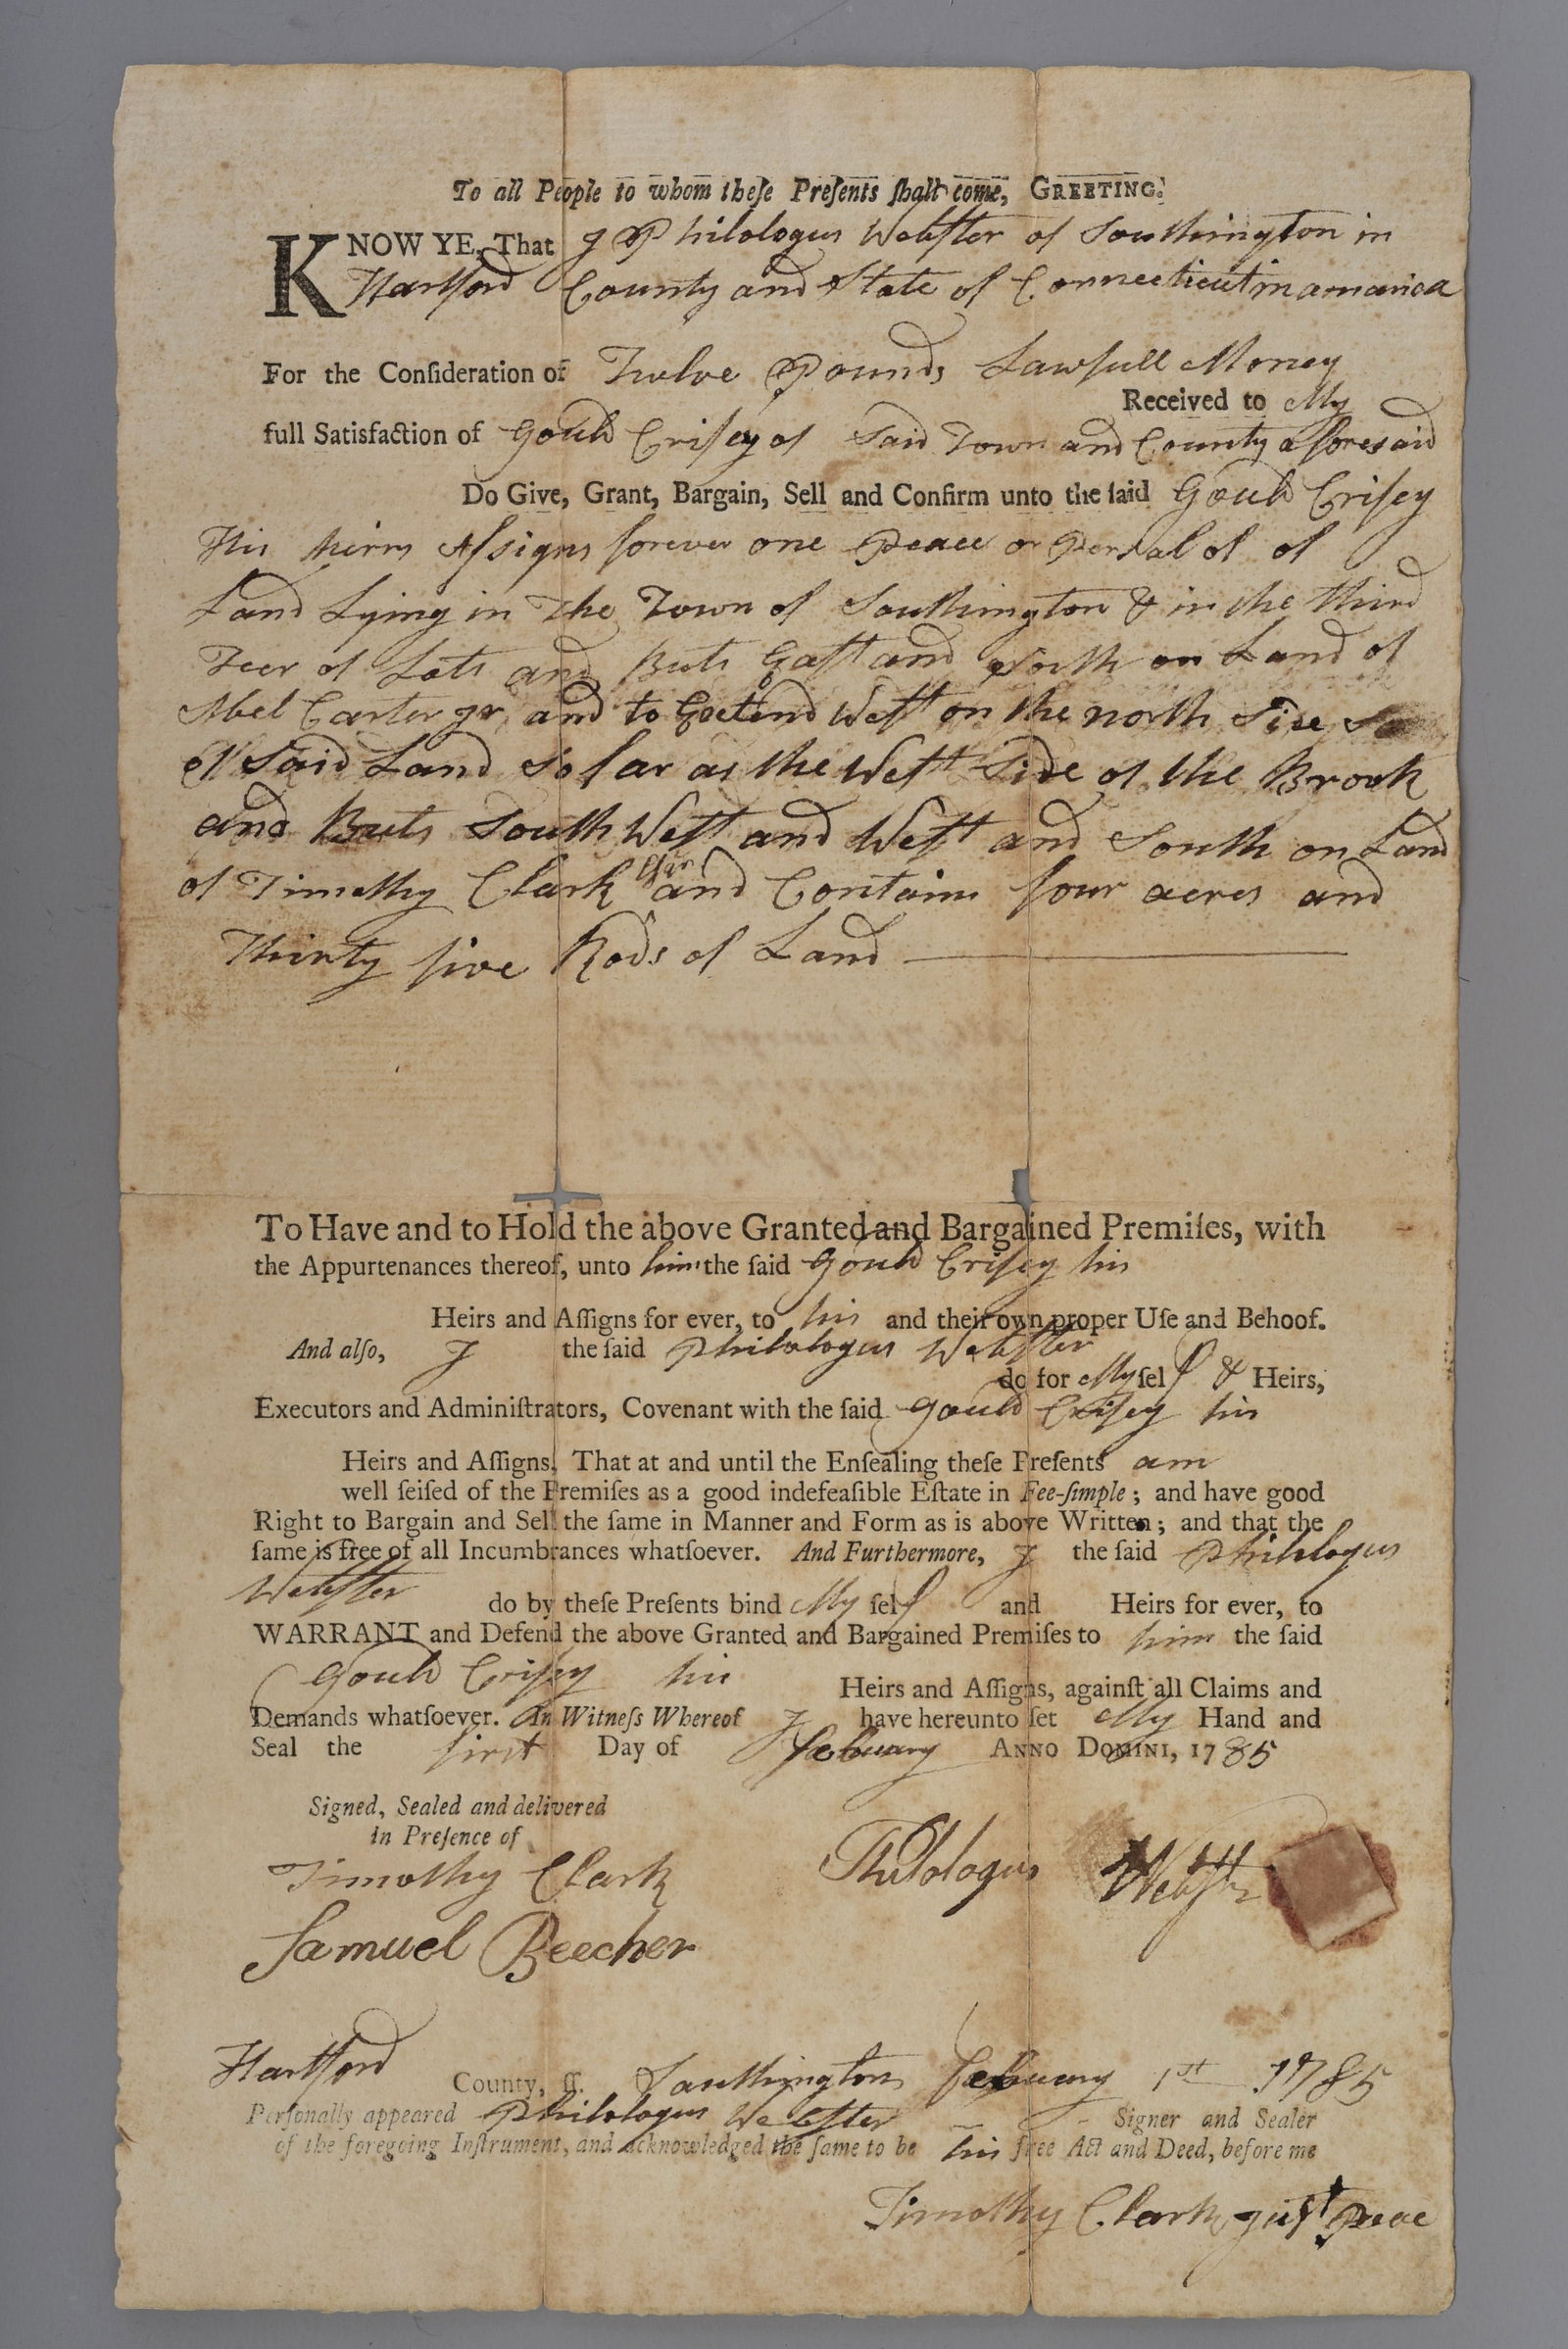 To all People to whom theſe Preſents ſhall come, GREETING.
KNOW YE, That J Philologus Webſter of Southington in
Hartford County and State of Connecticut in amarica
For the Conſideration of Twelve Pounds Lawfull Money
Received to My
full Satisfaction of Gould Criſey of Said Town and County aforesaid
Do Give, Grant, Bargain, Sell and Confirm unto the ſaid Gould Criſey
His heirs Aſsigns forever one Peace or Persal of of
Land Lying in The Town of Southington & in the third
Teer of Lots and Buts Eaſt and North on Land of
Abel Carter jr and to Extend Weſt on the north Side
of Said Land So far as the Weſt Side of the Brook
and Buts South Weſt and Weſt and South on Land
of Timothy Clark Esqr and Contains four acres and
Thirty five Rods of Land
To Have and to Hold the above Granted and Bargained Premiſes, with
the Appurtenances thereof, unto him the ſaid Gould Criſey his
Heirs and Aſſigns for ever, to his and their own proper Uſe and Behoof.
And alſo, J the ſaid Philologus Webſter
do for My ſelf & Heirs,
Executors and Adminiſtrators, Covenant with the ſaid Gould Criſey his
Heirs and Aſſigns, That at and until the Enſealing theſe Preſents am
well ſeiſed of the Premiſes as a good indefeaſible Eſtate in Fee-ſimple; and have good
Right to Bargain and Sell the ſame in Manner and Form as is above Written; and that the
ſame is free of all Incumbrances whatſoever. And Furthermore, J the ſaid Philologus
Webſter do by theſe Preſents bind My ſelf and Heirs for ever, to
WARRANT and Defend the above Granted and Bargained Premiſes to him the ſaid
Gould Criſey his Heirs and Aſſigns, againſt all Claims and
Demands whatſoever. In Witneſs Whereof J have hereunto ſet My Hand and
Seal the first Day of febuary ANNO DOMINI, 1785
Signed, Sealed and delivered
in Preſence of
Timothy Clark Philologus Webſter
Samuel Beecher
Hartford County, ſſ. Southington febuary 1st 1785
Perſonally appeared Philologus Webſter Signer and Sealer
of the foregoing Inſtrument, and acknowledged the ſame to be his free Act and Deed, before me
Timothy Clark juſt Peace